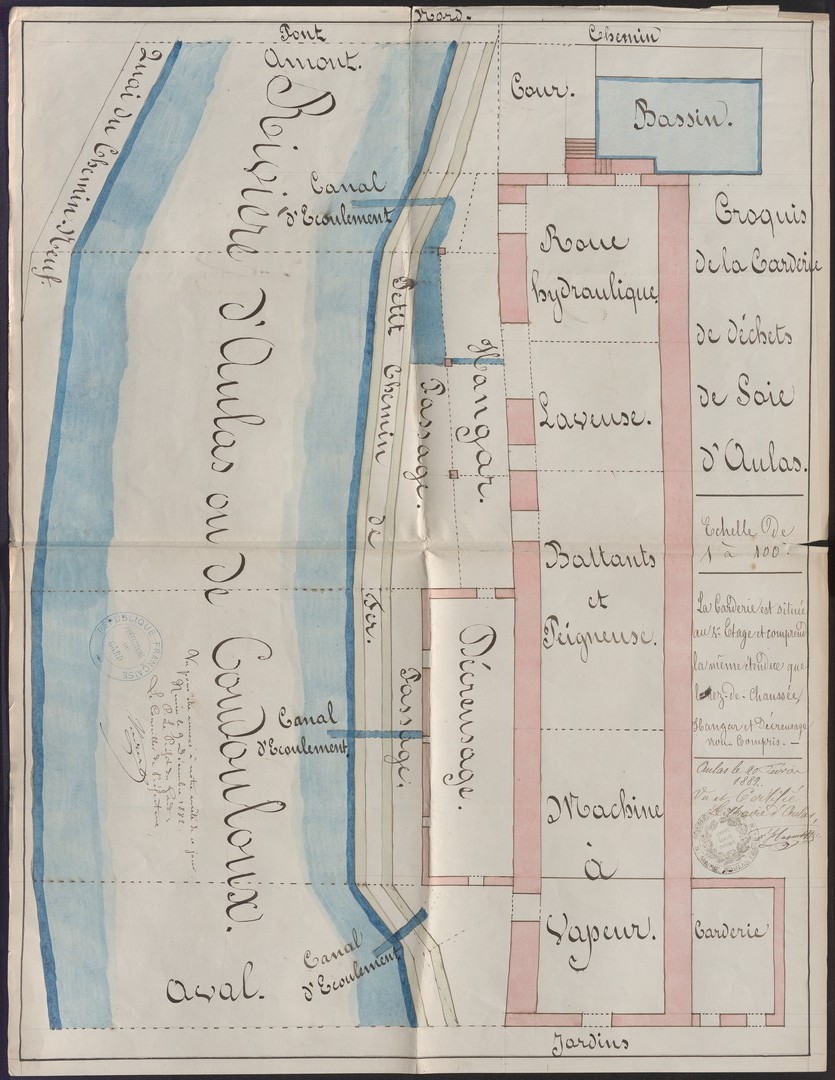 Nord.
Pont
Chemin
Amont.
Quai du Chemin Neuf.
Rivière d'Aulas ou de Coudouloux.
Cour.
Bassin.
Canal
d'Ecoulement
Croquis
de la Carderie
de déchets
de Soie
d'Aulas.
Roue
hydraulique.
Petit Chemin de Fer.
Hangar.
Passage.
Laveuse.
Echelle De
1 à 100
Battants
et
Peigneuse.
La Carderie est située
au 1er Etage et comprend
la même étendue que
le rez-de-Chaussée,
Hangar et Décreusage
non-Compris.
Décreusage.
Passage.
Canal
d'Ecoulement.
RÉPUBLIQUE FRANÇAISE
GARD
Nîmes le 9 Décembre 1882
Aulas le 20 Février
1882.
Vu et Certifié
Le Maire d'Aulas,
Machine
à
Vapeur.
Carderie
Canal
d'Ecoulement
Aval.
Jardins